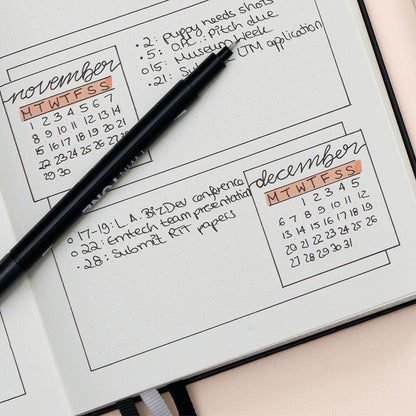 november
M T W T F S S
1 2 3 4 5 6 7
8 9 10 11 12 13 14
15 16 17 18 19 20 21
22 23 24 25 26 27 28
29 30
• 2: puppy needs shots
• 5: pitch due
o 15: Museum Week
• 21: LTM application
december
M T W T F S S
1 2 3 4 5
6 7 8 9 10 11 12
13 14 15 16 17 18 19
20 21 22 23 24 25 26
27 28 29 30 31
o 17-19: L.A. BizDev conference
o 22: Emtech team presentation
• 28: Submit RIT papers